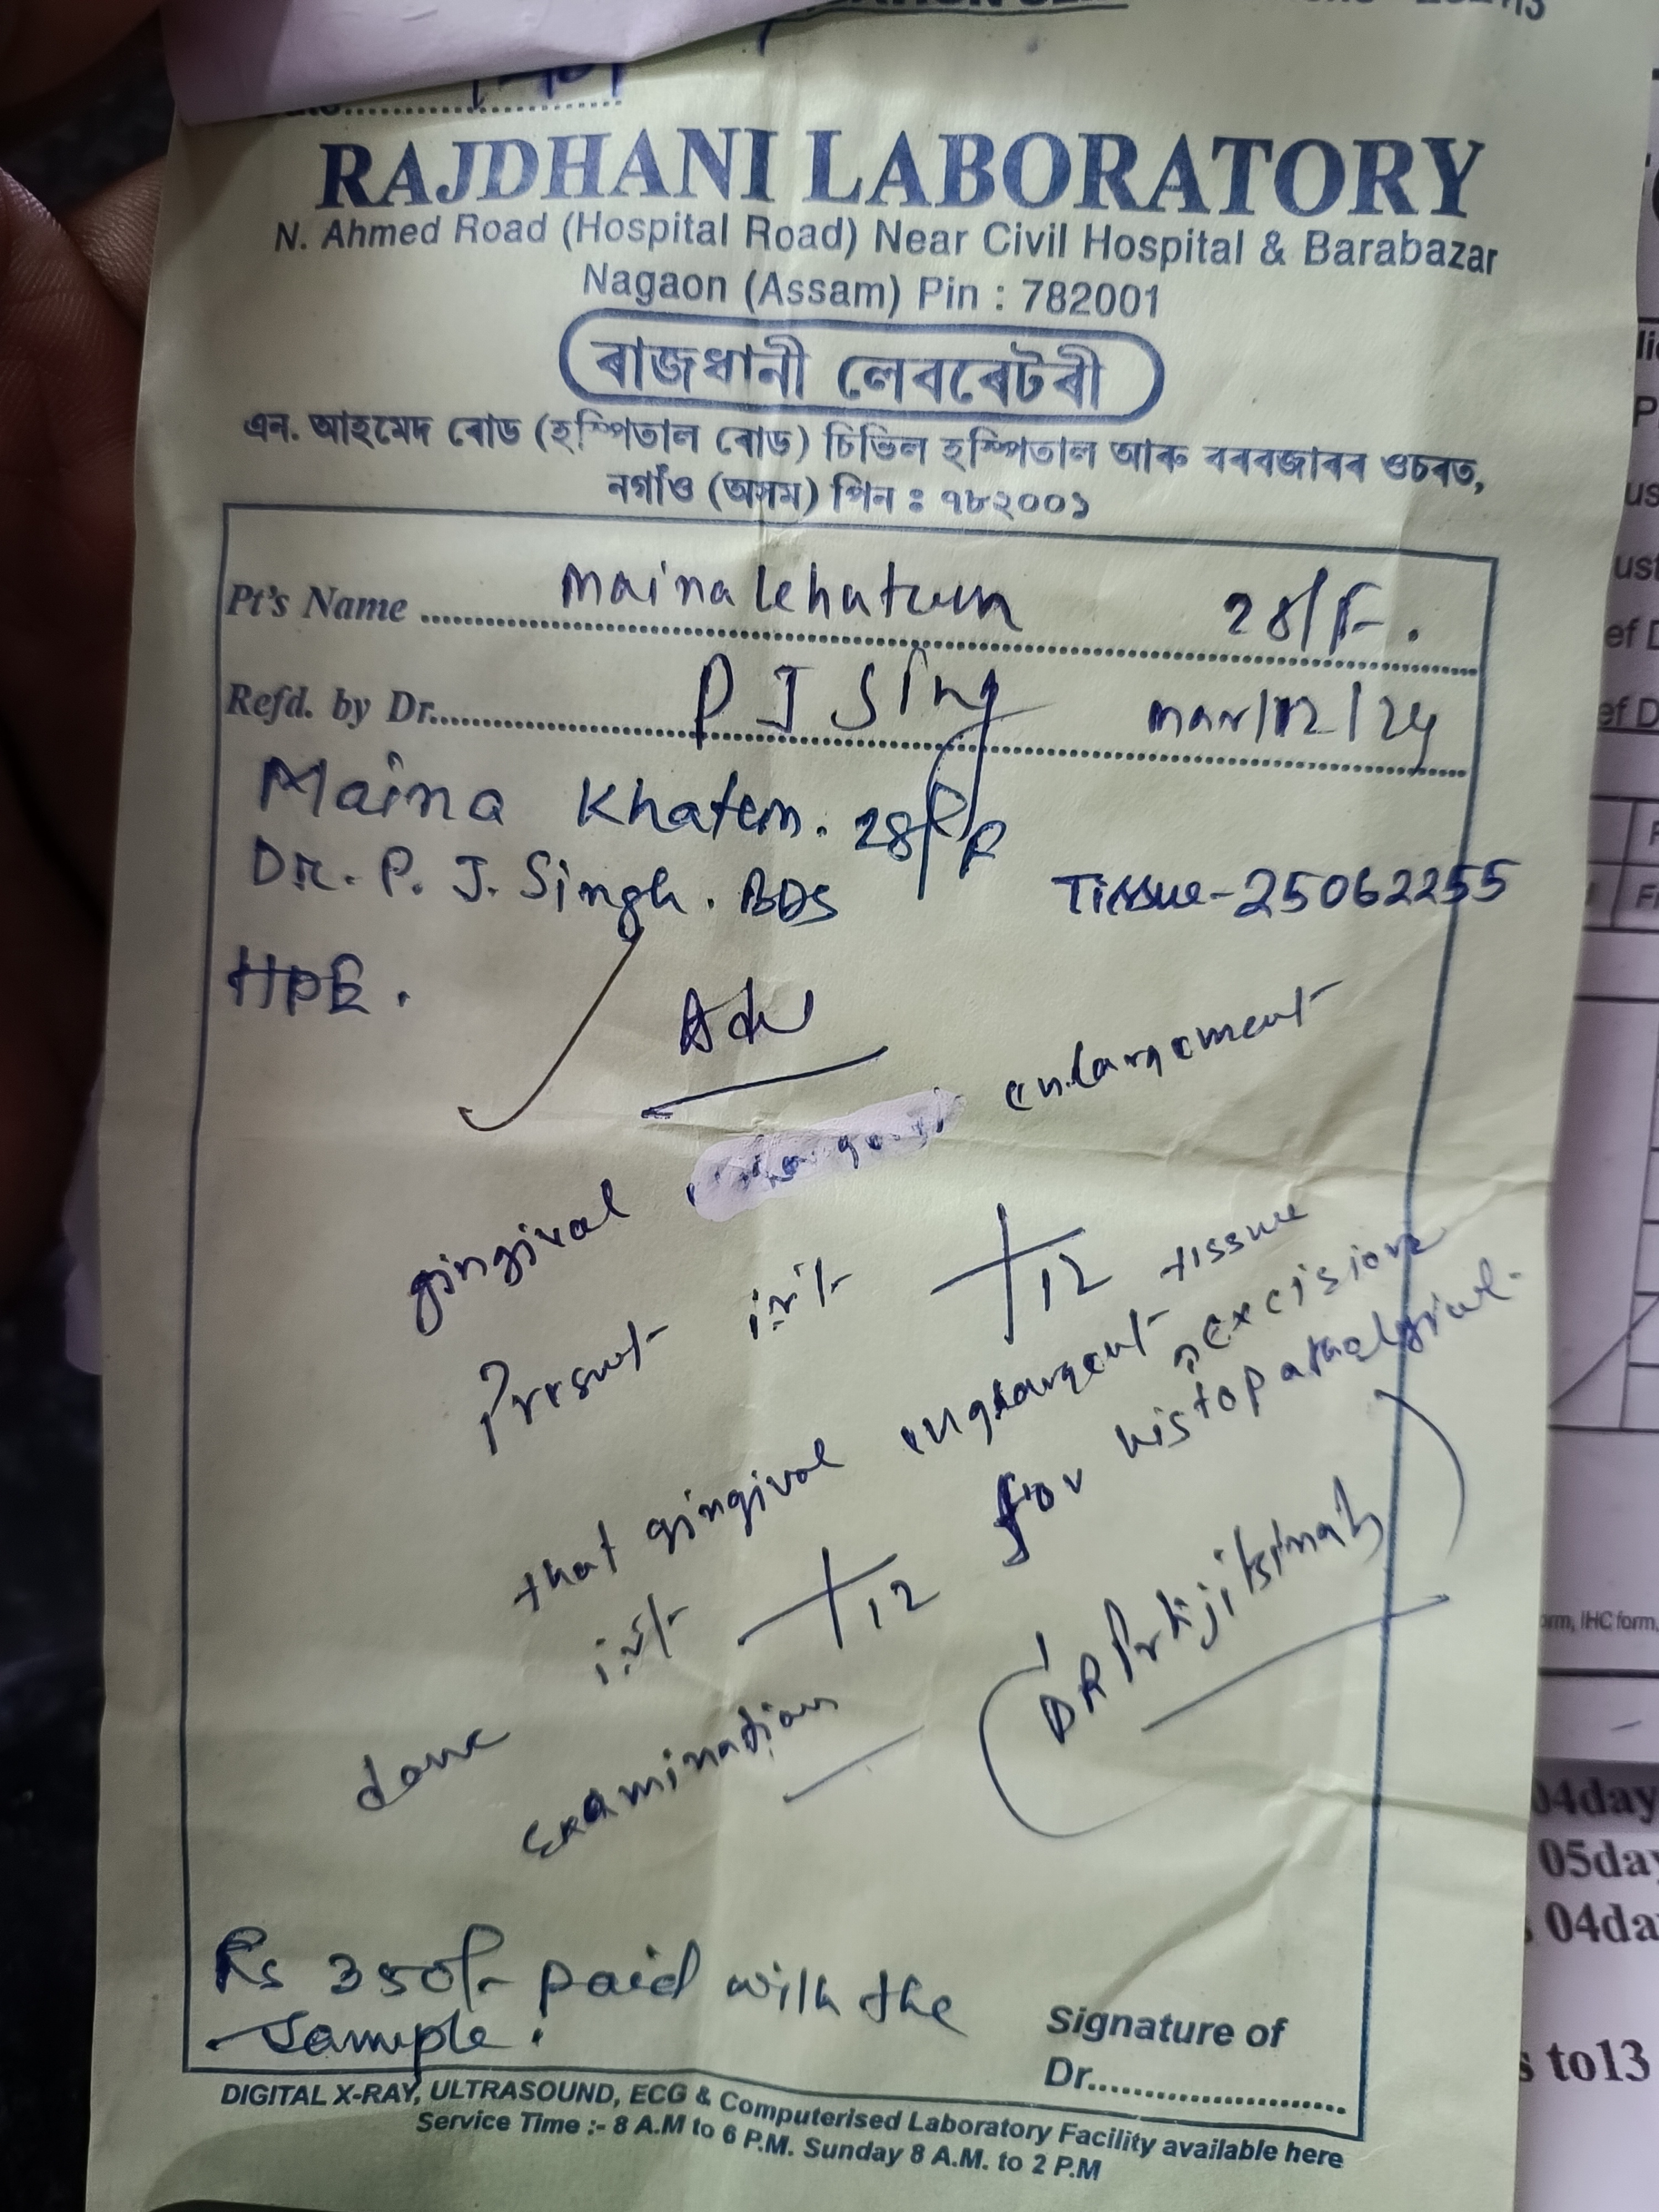 RAJDHANI LABORATORY
N. Ahmed Road (Hospital Road) Near Civil Hospital & Barabazar
Nagaon (Assam) Pin : 782001
ৰাজধানী লেবৰেটৰী
এন. আহমেদ ৰোড (হস্পিতাল ৰোড) চিভিল হস্পিতাল আৰু বৰবজাৰৰ ওচৰত,
নগাঁও (অসম) পিন : ৭৮২০০১
Pt's Name Maina khatun 28/F.
Refd. by Dr. P J Sing
Maina Khatem. 28/F
DR. P. J. Singh. BDS Tissue-25062255
HPE.
Adv
gingival enlargement
Present i.r/t 12
that gingival tissue
excision
done i.r/t 12 for histopathalogical
Examination
DR
Rs 350/- paid with the
sample.
Signature of
Dr.
DIGITAL X-RAY, ULTRASOUND, ECG & Computerised Laboratory Facility available here
Service Time :- 8 A.M to 6 P.M. Sunday 8 A.M. to 2 P.M
04day
05day
04da
s to13
orm, IHC form,